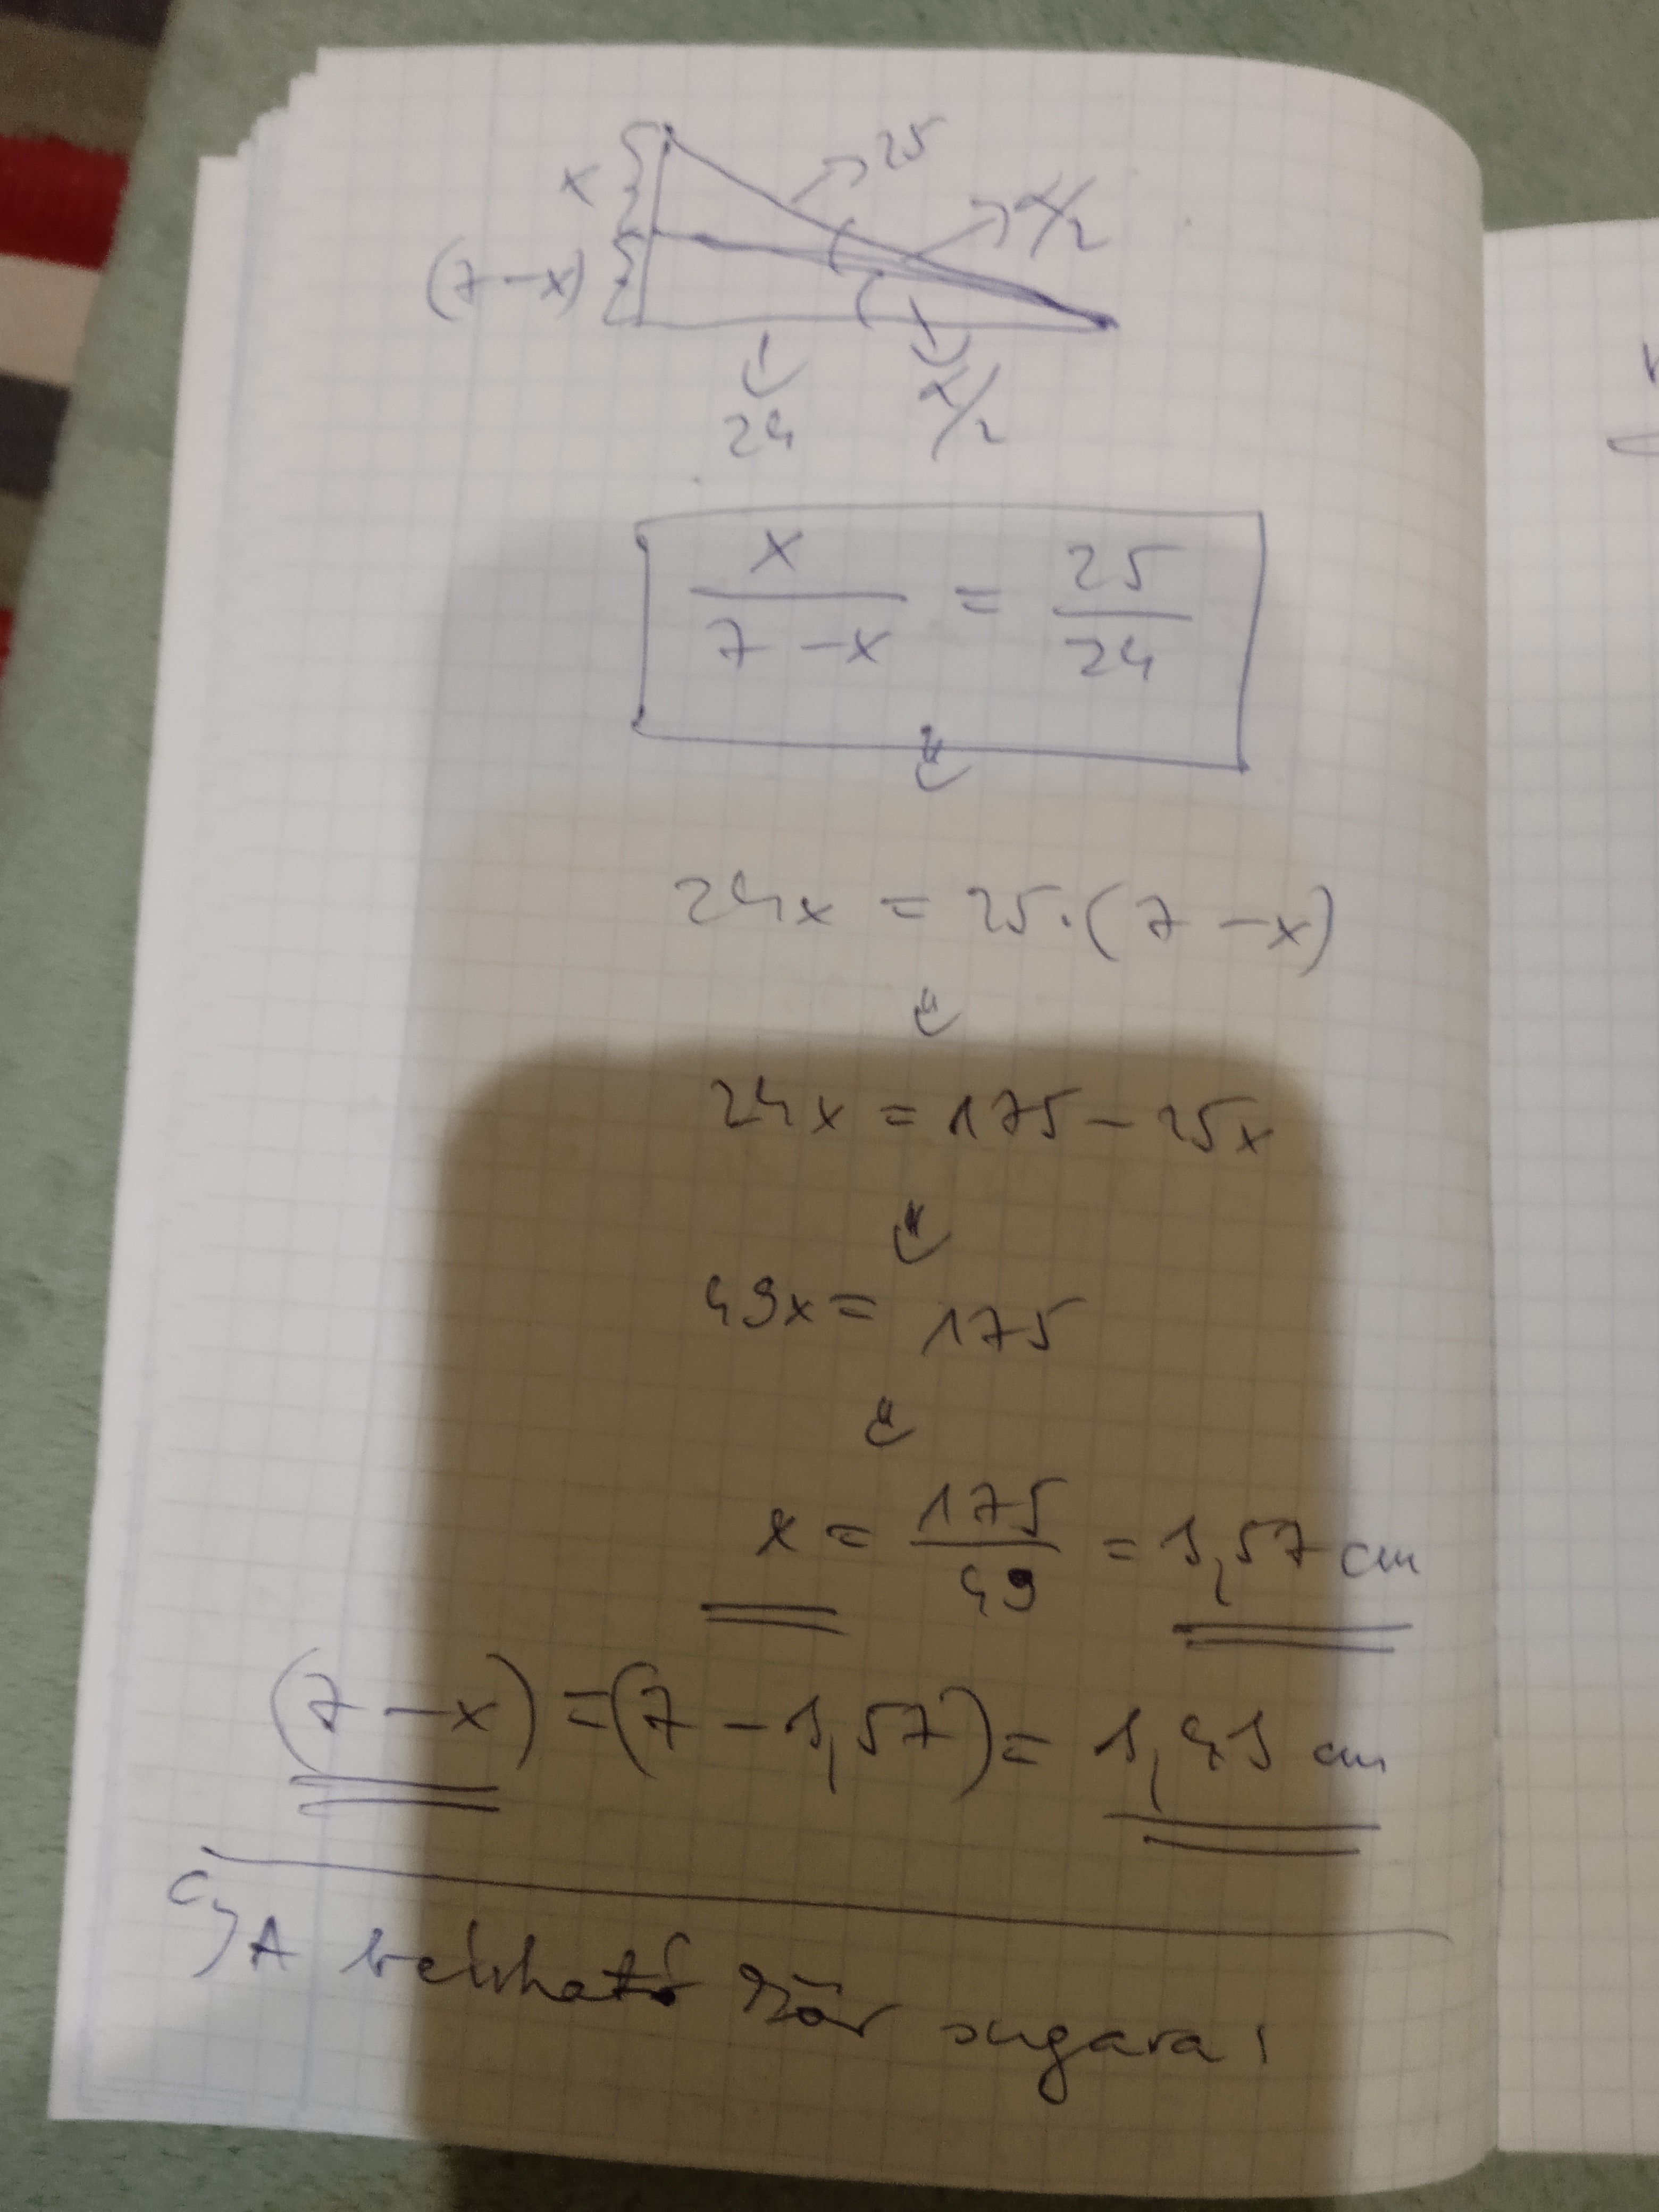 x
25
α/2
(7-x)
24
α/2
x/(7-x) = 25/24
24x = 25·(7-x)
24x = 175-25x
49x = 175
x = 175/49 = 3,57 cm
(7-x) = (7-3,57) = 3,43 cm
c, A beírható kör sugara: